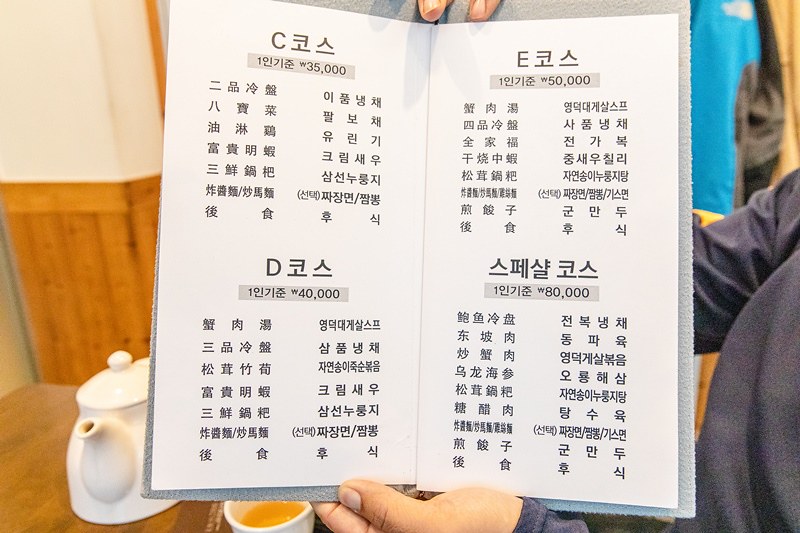 C코스
1인기준 ₩35,000
二品冷盤 이품냉채
八寶菜 팔보채
油淋鷄 유린기
富貴明蝦 크림새우
三鮮鍋粑 삼선누룽지
炸醬麵/炒馬麵 (선택)짜장면/짬뽕
後食 후식
D코스
1인기준 ₩40,000
蟹肉湯 영덕대게살스프
三品冷盤 삼품냉채
松茸竹荀 자연송이죽순볶음
富貴明蝦 크림새우
三鮮鍋粑 삼선누룽지
炸醬麵/炒馬麵 (선택)짜장면/짬뽕
後食 후식
E코스
1인기준 ₩50,000
蟹肉湯 영덕대게살스프
四品冷盤 사품냉채
全家福 전가복
干烧中蝦 중새우칠리
松茸鍋粑 자연송이누룽지탕
炸醬麵/炒馬麵/鷄絲麵 (선택)짜장면/짬뽕/기스면
煎餕子 군만두
後食 후식
스페샬 코스
1인기준 ₩80,000
鲍鱼冷盘 전복냉채
东坡肉 동파육
炒蟹肉 영덕게살볶음
乌龙海参 오룡해삼
松茸鍋粑 자연송이누룽지탕
糖醋肉 탕수육
炸醬麵/炒馬麵/鷄絲麵 (선택)짜장면/짬뽕/기스면
煎餕子 군만두
後食 후식